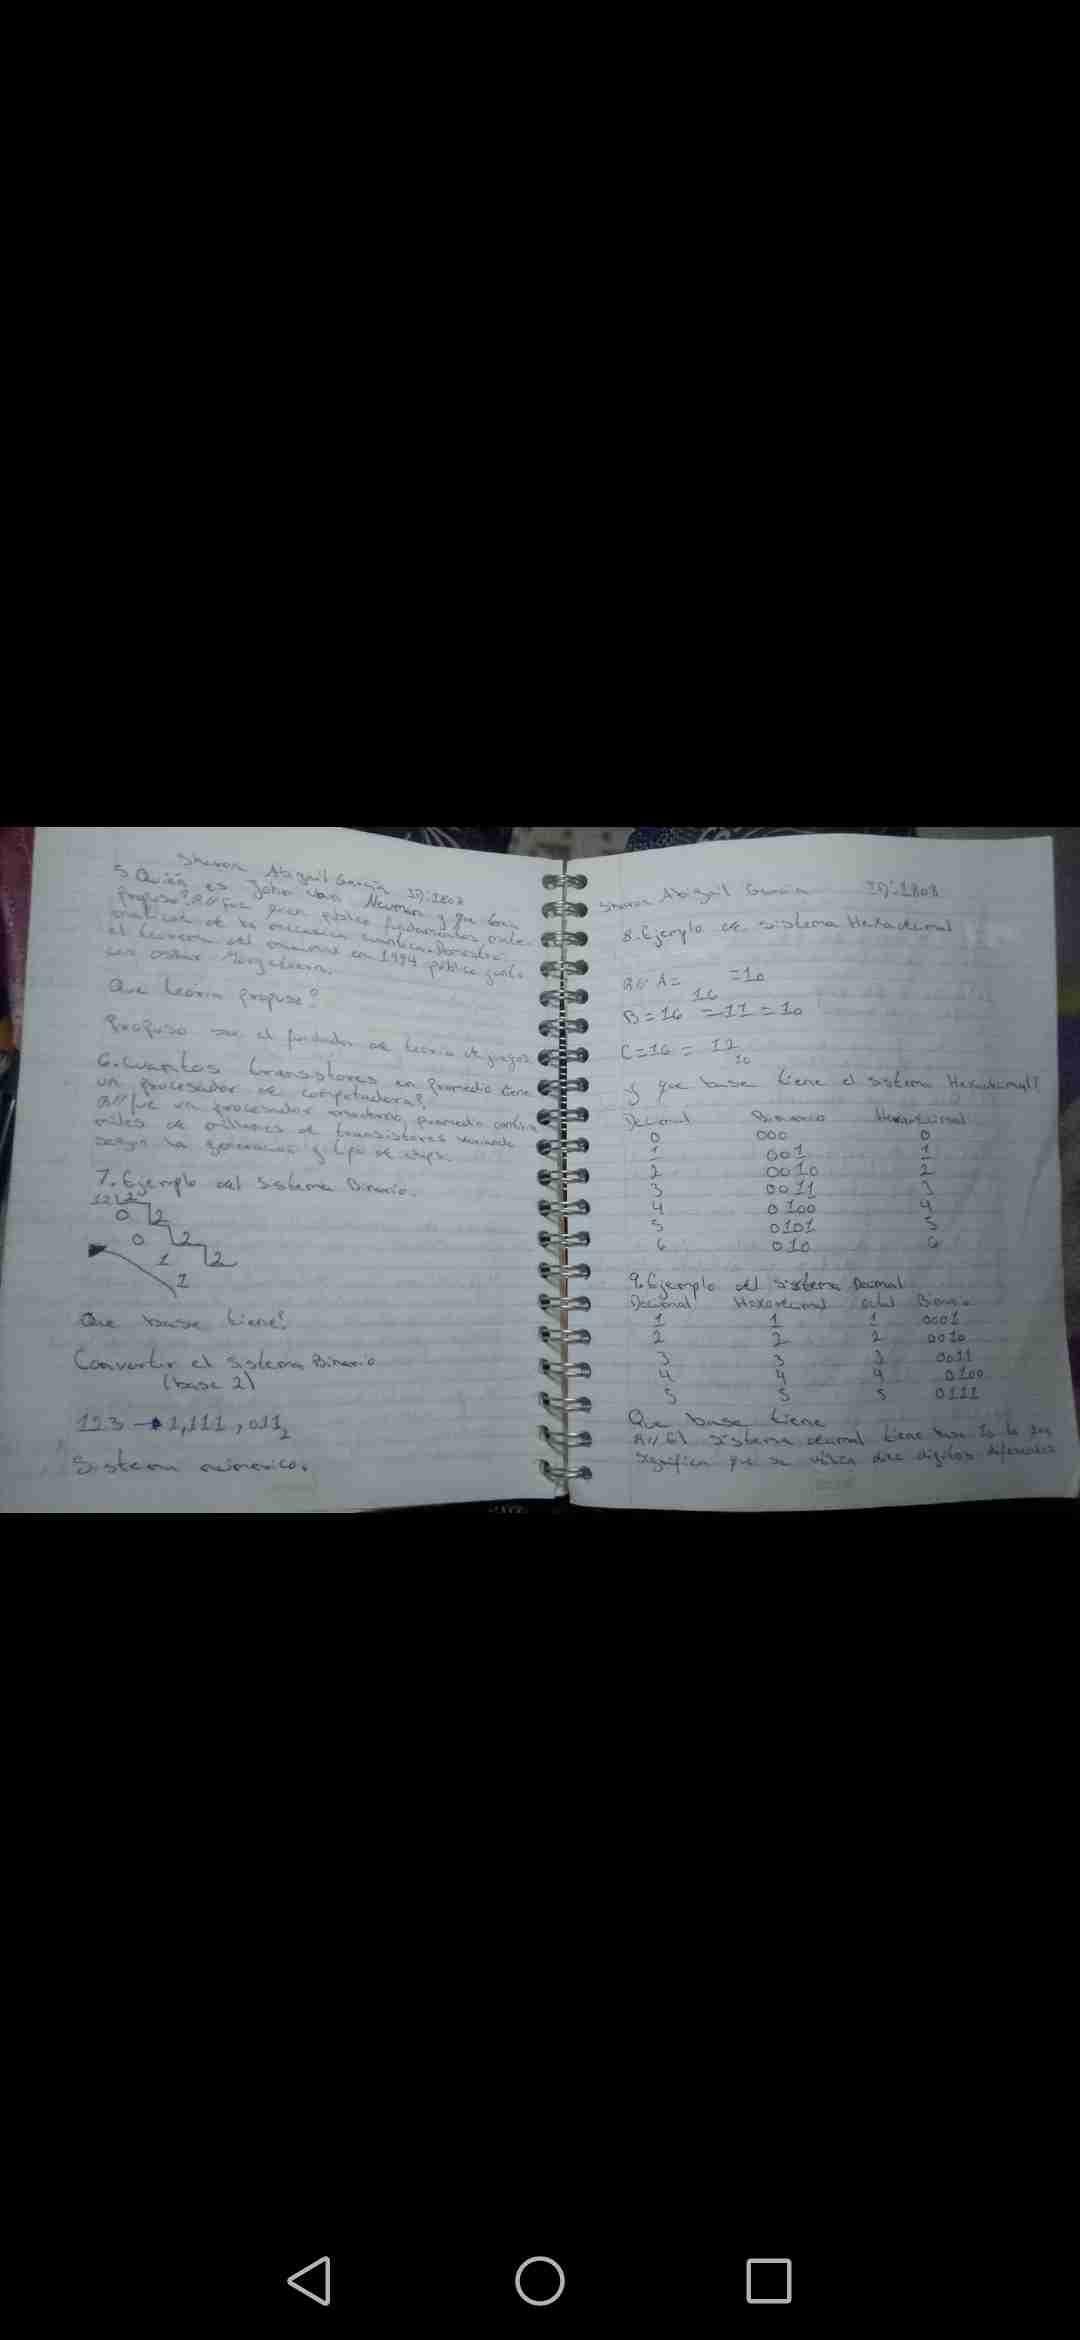 Sharon Abigail García ID:1808
5 Quién es John Von Neuman y que teoria
propuso? R// fue gran físico fundamentos mate-
maticos de la mecanica cuantica. Demostro
el teorema del en 1944 publico junto
con oskar
Que teoria propuse?
Propuso ser el fundador de teoria de juegos
6. Cuantos transistores en promedio tiene
un procesador de computadora?
R// un procesador moderno, promedio contiene
miles de millones de transistores variando
segun la generacion y tipo de chips.
7. Ejemplo del sistema Binario.
12 2
0 2
0 2
1 2
1
Que base tiene?
Convertir el sistema Binario
(base 2)
123 → 1,111,011₂
Sistema numerico.
Sharon Abigail García ID:1808
8. Ejemplo de sistema Hexadecimal
R// A= 16 =10
B=16 =11=10
C=16= 12 10
y que base tiene el sistema Hexadecimal?
Decimal Binario Hexadecimal
0 000 0
1 001 1
2 0010 2
3 0011 3
4 0100 4
5 0101 5
6 010 6
9. Ejemplo del sistema Decimal
Decimal Hexadecimal octal Binario
1 1 1 0001
2 2 2 0010
3 3 3 0011
4 4 4 0100
5 5 5 0111
Que base tiene
R// El sistema decimal tiene base 10 lo que
significa que se utiliza diez digitos diferentes